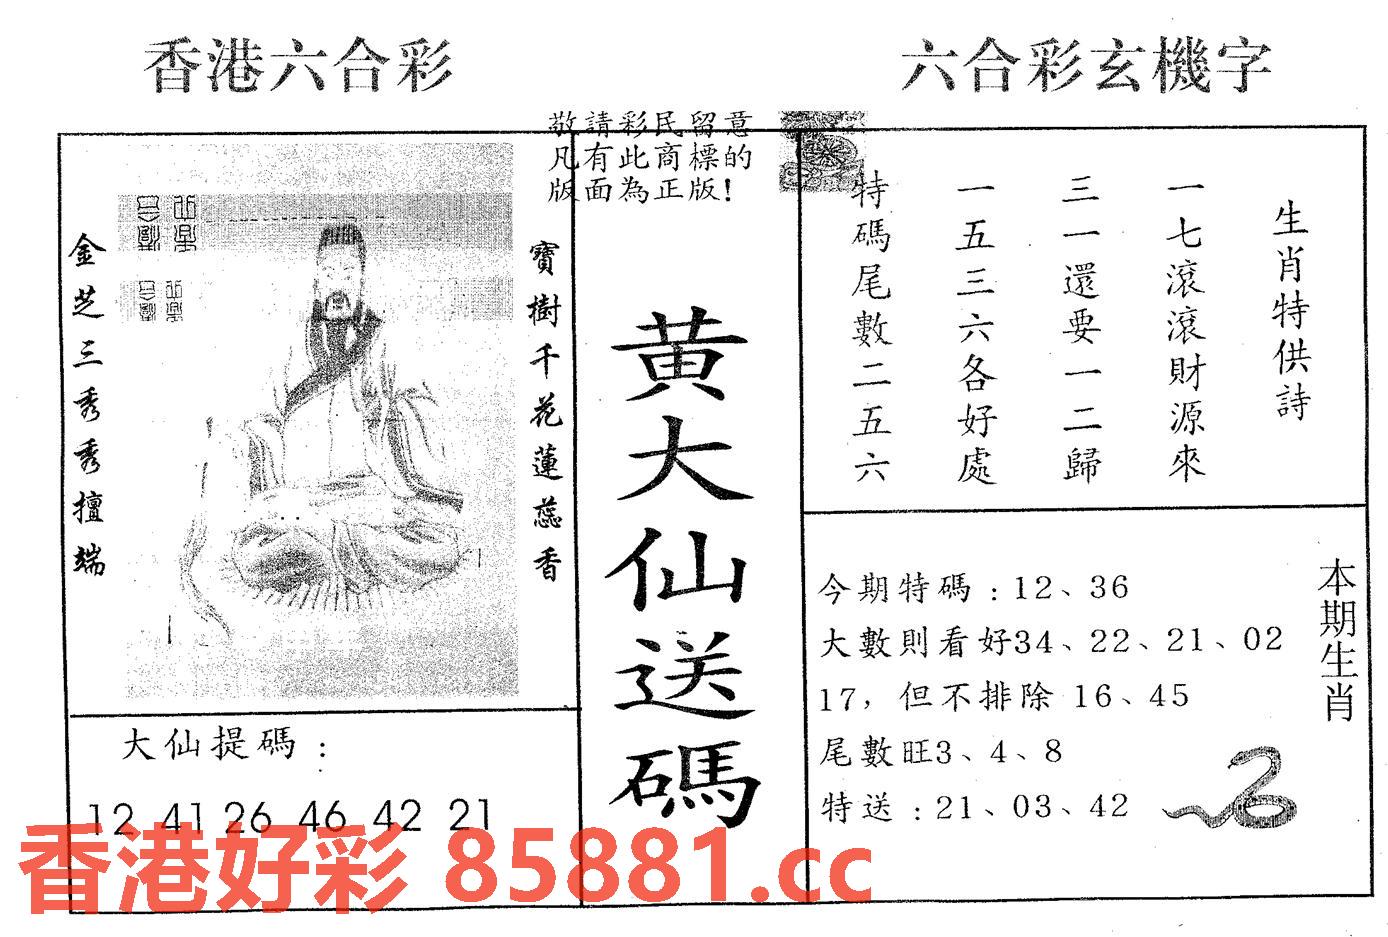 香港六合彩
六合彩玄機字
敬請彩民留意
凡有此商標的
版面為正版!
金芝三秀秀擅端
寶樹千花蓮蕊香
黃大仙送碼
生肖特供詩
一七滾滾財源來
三一還要一二歸
一五三六各好處
特碼尾數二五六
大仙提碼：
12 41 26 46 42 21
本期生肖
今期特碼：12、36
大數則看好34、22、21、02
17，但不排除 16、45
尾數旺3、4、8
特送：21、03、42
香港好彩 85881.cc